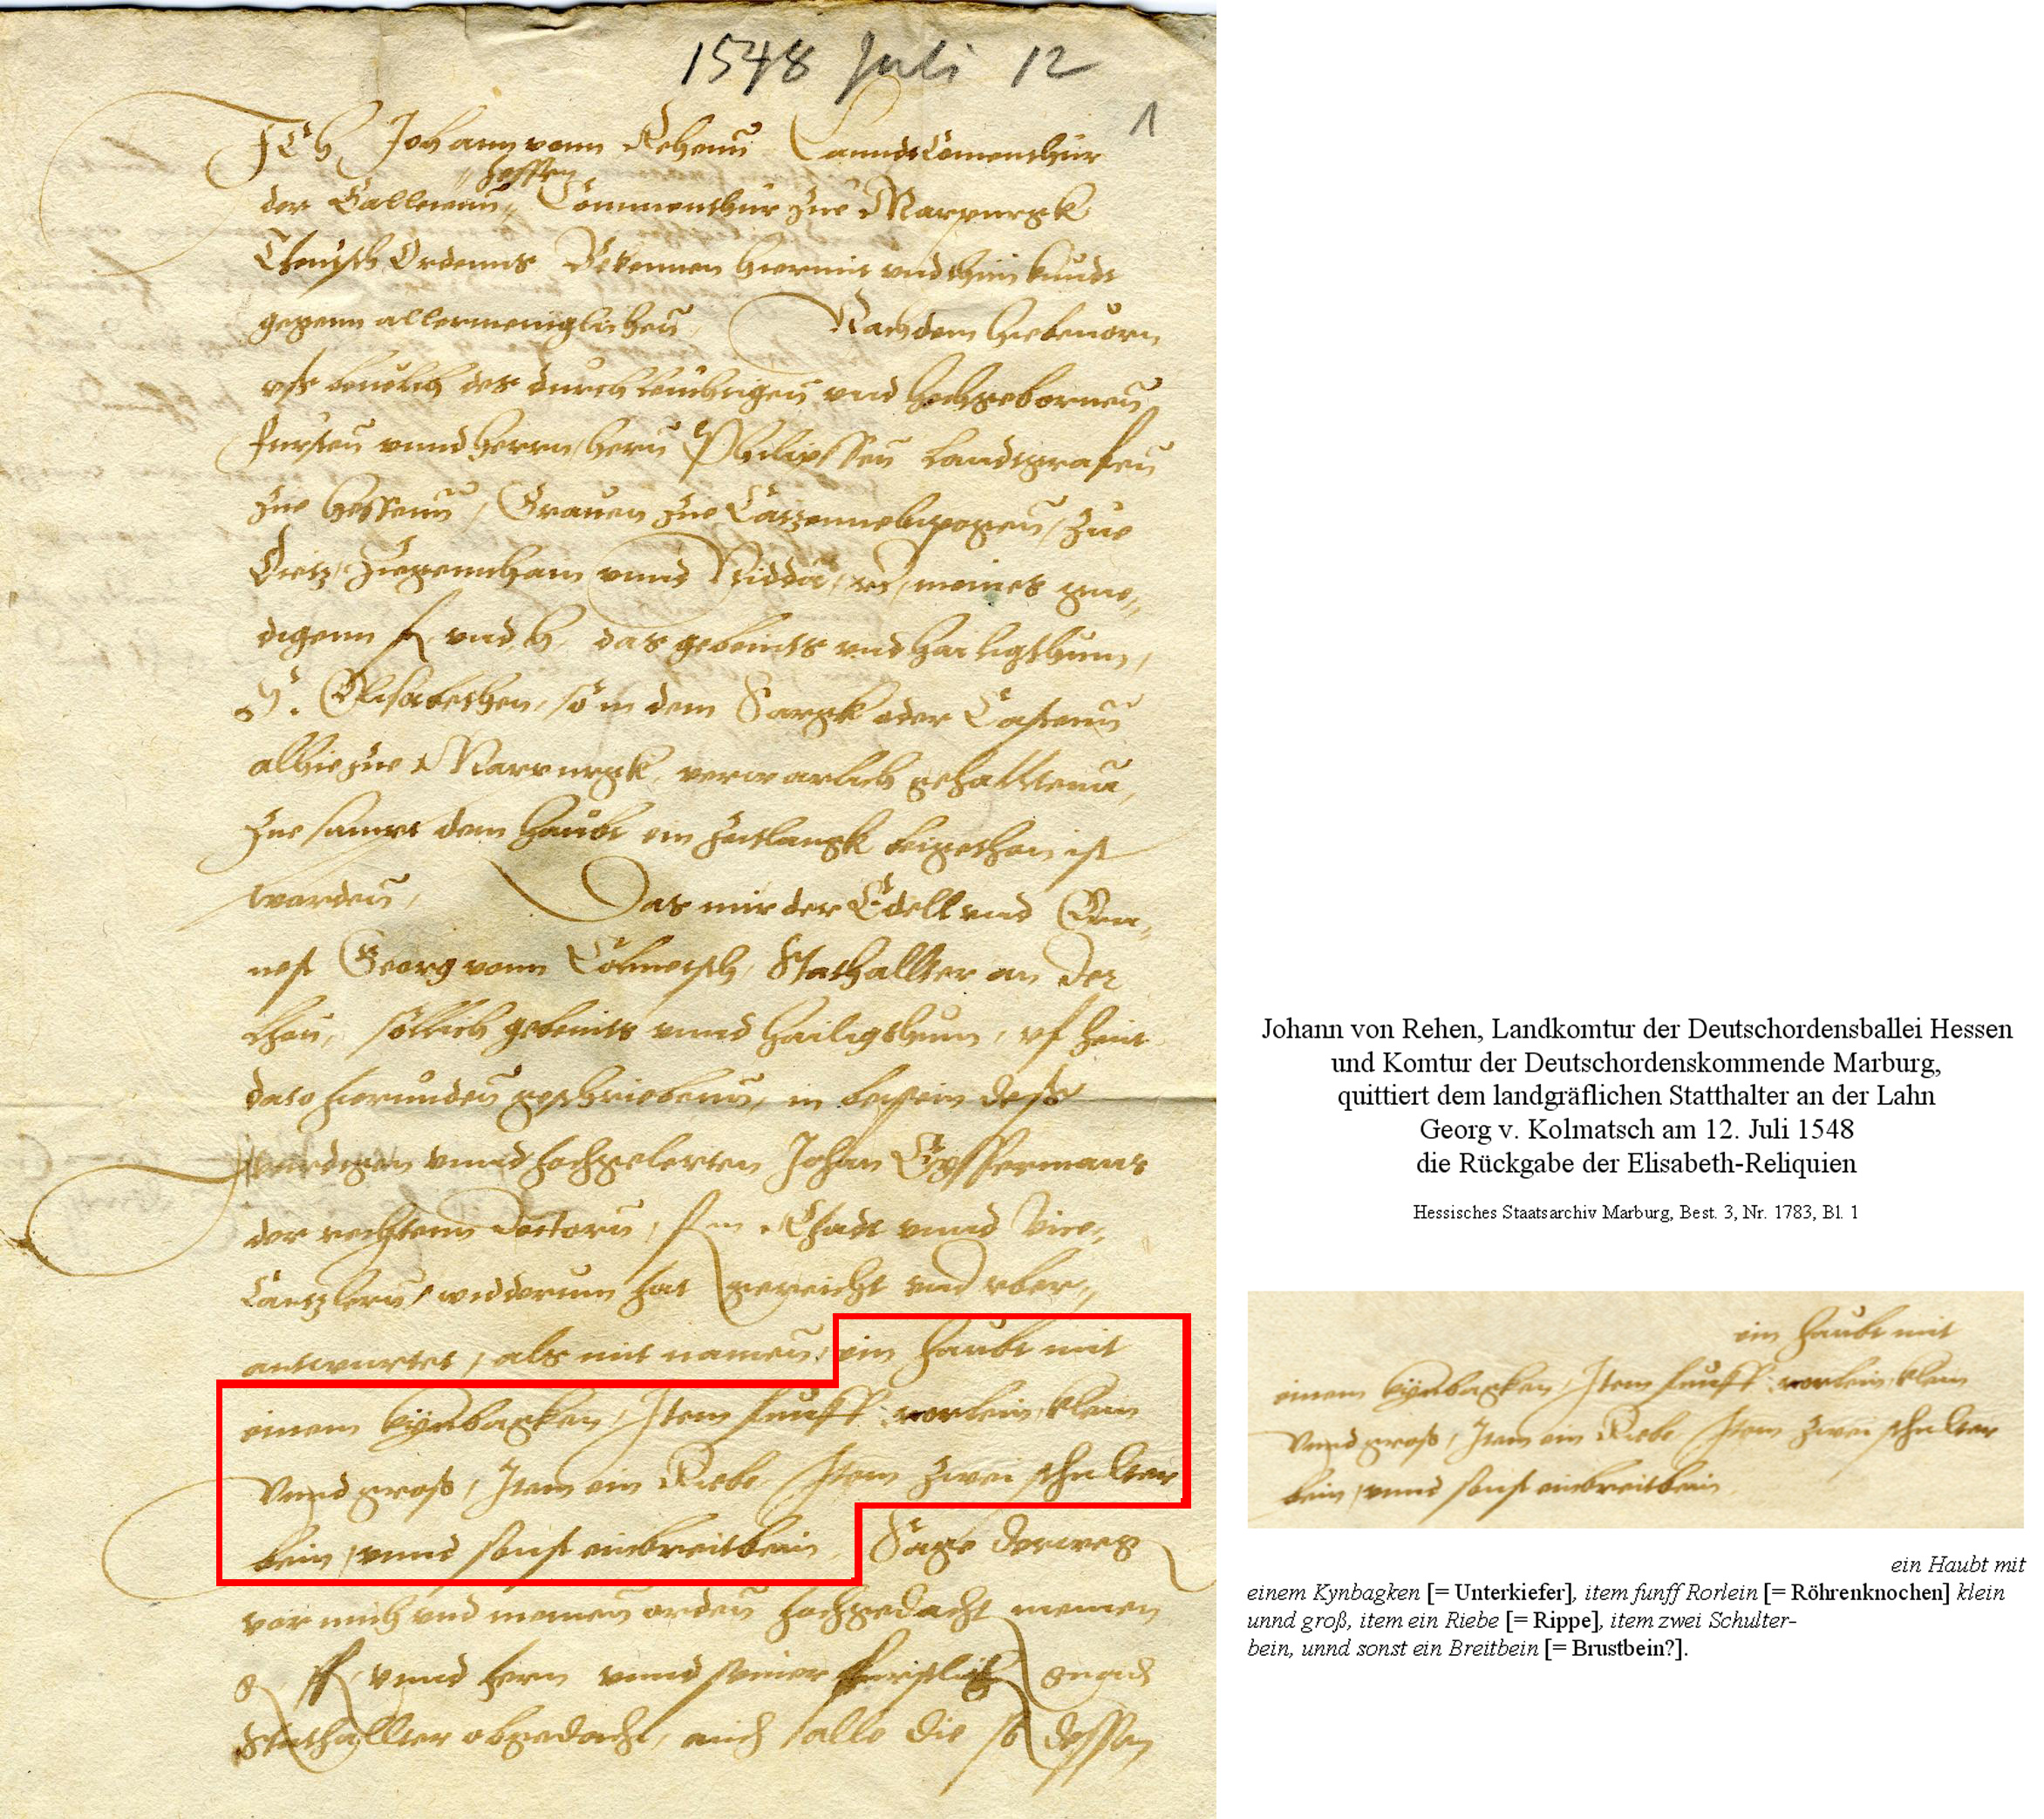 1548 Juli 12
1
Ich Johann vonn Rehenn Lanndt Comenthur
der Balleienn Hessen Commenthur zue Marpurgk
Theutsch Ordenns Bekennen hiermit und thun kundt
gegenn allermeniglichen, Nachdem hiebeuorn
des durchleuchtigen vnd hochgebornen
fursten vnnd herrn hern Philipssen Landtgrafen
zue Hessenn, Grauen zue Catzennelnpogen, zue
Dietz, Ziegennhain vnnd Nidda, meines gne-
digenn f vnd h das gebeints vnd hailigthum,
S. Elisabethen, so in dem Sargk oder Castenn
alhie zue Marpurgk, verwarlich gehalttenn,
zue sampt dem haubt ein Zeitlangk beigethan ist
worden, Das mir der Edell vnd Ern-
uest Georg vonn Colmatsch, Stathallter an der
Lhon, sollich gebeints vnnd hailigthum, vf heut
dato hierunden geschriebenn, in beisein deß
wurdigen vnnd hochgelerten Johan
der rechtenn Doctorn, vnnd Vice-
Cantzlern, widderum hat gereicht vnd vber-
antwurtet, als mit namen, ein Haubt mit
einem Kynbagken, Item funff rorlein, klein
Vnnd groß, Item ein Riebe Item zwei schulter
bein, vnnd sonst ein breitbein, Sage derweg
vor mich vnd meinen orden hochgedacht meinen
g f vnnd hern vnnd seiner furstlich gnad
Stathallter obgedacht, auch alle die so dessen
Johann von Rehen, Landkomtur der Deutschordensballei Hessen
und Komtur der Deutschordenskommende Marburg,
quittiert dem landgräflichen Statthalter an der Lahn
Georg v. Kolmatsch am 12. Juli 1548
die Rückgabe der Elisabeth-Reliquien
Hessisches Staatsarchiv Marburg, Best. 3, Nr. 1783, Bl. 1
ein Haubt mit
einem Kynbagken, Item funff rorlein, klein
Vnnd groß, Item ein Riebe Item zwei schulter
bein, vnnd sonst ein breitbein
ein Haubt mit
einem Kynbagken [= Unterkiefer], item funff Rorlein [= Röhrenknochen] klein
unnd groß, item ein Riebe [= Rippe], item zwei Schulter-
bein, unnd sonst ein Breitbein [= Brustbein?].